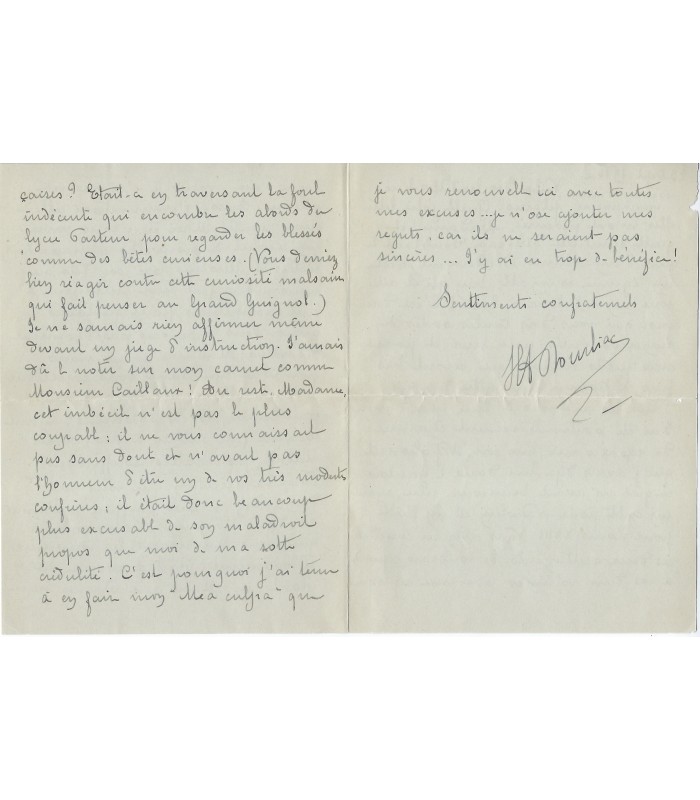 çaises? Etait-ce en traversant la foule
indécente qui encombre les abords du
lycée Pasteur pour regarder les blessés
comme des bêtes curieuses. (Vous devriez
bien réagir contre cette curiosité malsaine
qui fait penser au Grand Guignol.)
Je ne saurais rien affirmer même
devant un juge d'instruction. J'aurais
dû le noter sur mon carnet comme
Monsieur Caillaux! Du reste, Madame,
cet imbécile n'est pas le plus
coupable; il ne vous connaissait
pas sans doute et n'avait pas
l'honneur d'être un de vos très modestes
confrères; il était donc beaucoup
plus excusable de son maladroit
propos que moi de ma sotte
crédulité. C'est pourquoi j'ai tenu
à en faire mon "Mea culpa" que
je vous renouvelle ici avec toutes
mes excuses... je n'ose ajouter mes
regrets, car ils ne seraient pas
sincères... J'y ai eu trop de bénéfice!
Sentiments confraternels